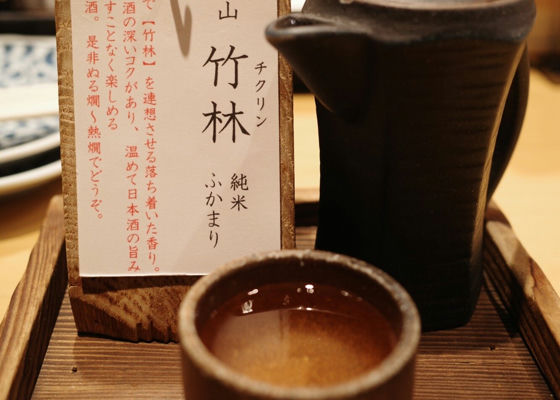 山 竹林
チクリン
純米 ふかまり
で【竹林】を連想させる落ち着いた香り。
酒の深いコクがあり、温めて日本酒の旨み
すことなく楽しめる
酒。是非ぬる燗〜熱燗でどうぞ。